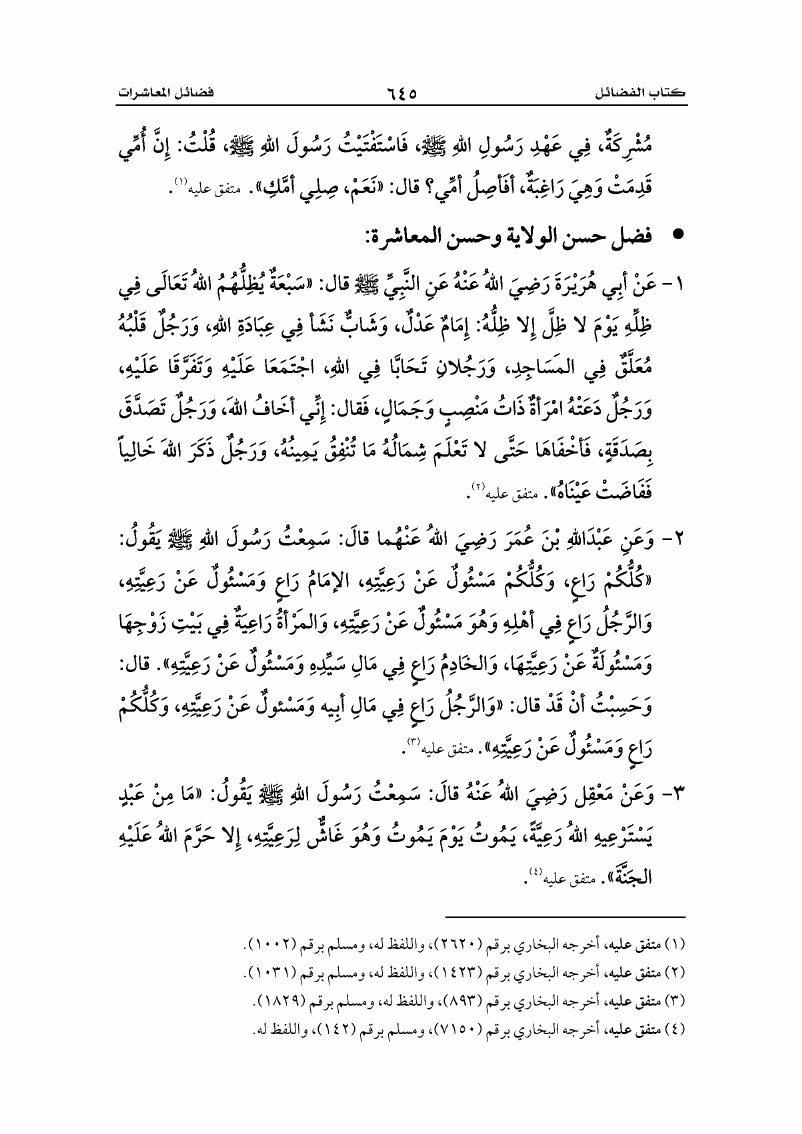 كتاب الفضائل ٦٤٥ فضائل المعاشرات
مُشْرِكَةٌ، فِي عَهْدِ رَسُولِ اللهِ ﷺ، فَاسْتَفْتَيْتُ رَسُولَ اللهِ ﷺ، قُلْتُ: إنَّ أُمِّي
قَدِمَتْ وَهِيَ رَاغِبَةٌ، أفَأصِلُ أمِّي؟ قال: «نَعَمْ، صِلِي أمَّكِ». متفق عليه(١).
● فضل حسن الولاية وحسن المعاشرة:
١- عَنْ أبِي هُرَيْرَةَ رَضِيَ اللهُ عَنْهُ عَنِ النَّبِيِّ ﷺ قال: «سَبْعَةٌ يُظِلُّهُمُ اللهُ تَعَالَى فِي
ظِلِّهِ يَوْمَ لا ظِلَّ إلا ظِلُّهُ: إمَامٌ عَدْلٌ، وَشَابٌّ نَشَأ فِي عِبَادَةِ اللهِ، وَرَجُلٌ قَلْبُهُ
مُعَلَّقٌ فِي المَسَاجِدِ، وَرَجُلانِ تَحَابَّا فِي اللهِ، اجْتَمَعَا عَلَيْهِ وَتَفَرَّقَا عَلَيْهِ،
وَرَجُلٌ دَعَتْهُ امْرَأةٌ ذَاتُ مَنْصِبٍ وَجَمَالٍ، فَقال: إنِّي أخَافُ اللهَ، وَرَجُلٌ تَصَدَّقَ
بِصَدَقَةٍ، فَأخْفَاهَا حَتَّى لا تَعْلَمَ شِمَالُهُ مَا تُنْفِقُ يَمِينُهُ، وَرَجُلٌ ذَكَرَ اللهَ خَالِياً
فَفَاضَتْ عَيْنَاهُ». متفق عليه(٢).
٢- وَعَنِ عَبْدَاللهِ بْنَ عُمَرَ رَضِيَ اللهُ عَنْهُما قالَ: سَمِعْتُ رَسُولَ اللهِ ﷺ يَقُولُ:
«كُلُّكُمْ رَاعٍ، وَكُلُّكُمْ مَسْئُولٌ عَنْ رَعِيَّتِهِ، الإمَامُ رَاعٍ وَمَسْئُولٌ عَنْ رَعِيَّتِهِ،
وَالرَّجُلُ رَاعٍ فِي أهْلِهِ وَهُوَ مَسْئُولٌ عَنْ رَعِيَّتِهِ، وَالمَرْأةُ رَاعِيَةٌ فِي بَيْتِ زَوْجِهَا
وَمَسْئُولَةٌ عَنْ رَعِيَّتِهَا، وَالخَادِمُ رَاعٍ فِي مَالِ سَيِّدِهِ وَمَسْئُولٌ عَنْ رَعِيَّتِهِ». قال:
وَحَسِبْتُ أنْ قَدْ قال: «وَالرَّجُلُ رَاعٍ فِي مَالِ أبِيه وَمَسْئولٌ عَنْ رَعِيَّتِهِ، وَكُلُّكُمْ
رَاعٍ وَمَسْئُولٌ عَنْ رَعِيَّتِهِ». متفق عليه(٣).
٣- وَعَنْ مَعْقِل رَضِيَ اللهُ عَنْهُ قالَ: سَمِعْتُ رَسُولَ اللهِ ﷺ يَقُولُ: «مَا مِنْ عَبْدٍ
يَسْتَرْعِيهِ اللهُ رَعِيَّةً، يَمُوتُ يَوْمَ يَمُوتُ وَهُوَ غَاشٌّ لِرَعِيَّتِهِ، إلا حَرَّمَ اللهُ عَلَيْهِ
الجَنَّةَ». متفق عليه(٤).
(١) متفق عليه، أخرجه البخاري برقم (٢٦٢٠)، واللفظ له، ومسلم برقم (١٠٠٢).
(٢) متفق عليه، أخرجه البخاري برقم (١٤٢٣)، واللفظ له، ومسلم برقم (١٠٣١).
(٣) متفق عليه، أخرجه البخاري برقم (٨٩٣)، واللفظ له، ومسلم برقم (١٨٢٩).
(٤) متفق عليه، أخرجه البخاري برقم (٧١٥٠)، ومسلم برقم (١٤٢)، واللفظ له.